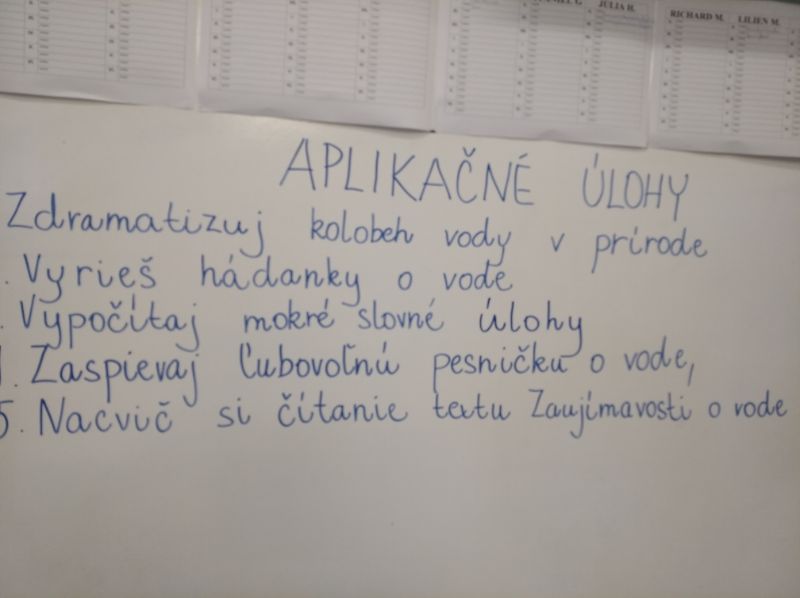 JÚLIA H.
RICHARD M.
LILIEN M.
APLIKAČNÉ ÚLOHY
Zdramatizuj kolobeh vody v prírode
. Vyrieš hádanky o vode
. Vypočítaj mokré slovné úlohy
. Zaspievaj ľubovoľnú pesničku o vode,
5. Nacvič si čítanie textu Zaujímavosti o vode